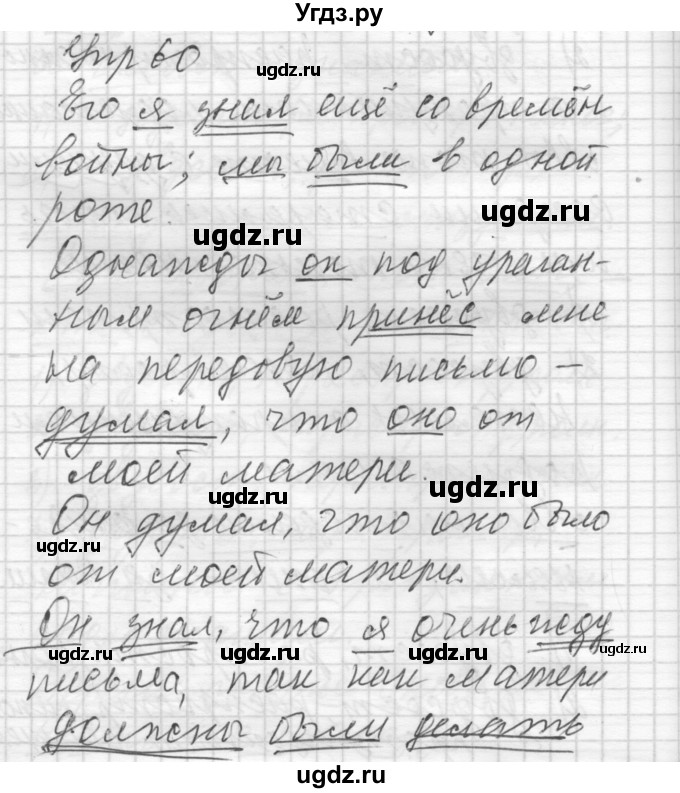 Угдз.ру
Упр 60
ugdz.ru
Его я знал ещё со времён
войны; мы были в одной
роте.
ugdz.ru
ugdz.ru
Однажды он под ураган-
ным огнём принёс мне
ugdz.ru
на передовую письмо –
думал, что оно от
моей матери.
ugdz.ru
ugdz.ru
Он думал, что оно было
ugdz.ru
от моей матери.
Он знал, что я очень жду
ugdz.ru
ugdz.ru
ugdz.ru
ugdz.ru
письма, так как матери
должны были делать
ugdz.ru